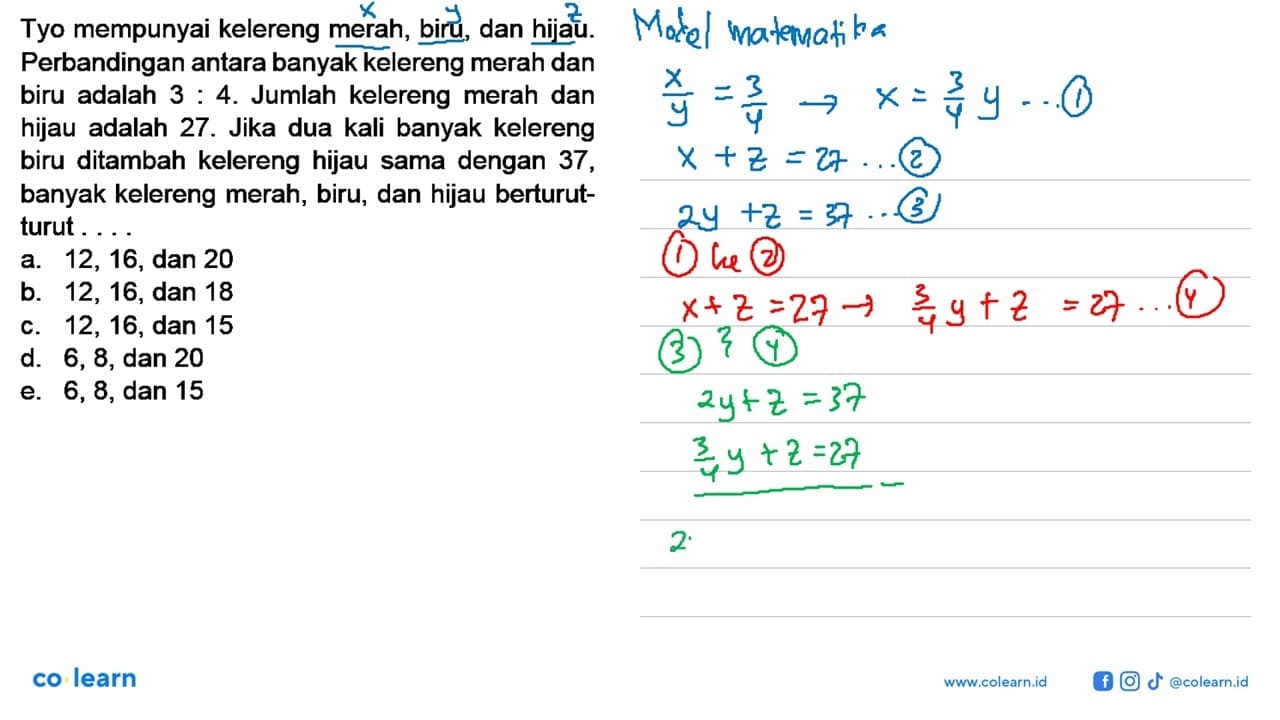 x y z
Tyo mempunyai kelereng merah, biru, dan hijau.
Perbandingan antara banyak kelereng merah dan
biru adalah 3 : 4. Jumlah kelereng merah dan
hijau adalah 27. Jika dua kali banyak kelereng
biru ditambah kelereng hijau sama dengan 37,
banyak kelereng merah, biru, dan hijau berturut-
turut . . . .
a. 12, 16, dan 20
b. 12, 16, dan 18
c. 12, 16, dan 15
d. 6, 8, dan 20
e. 6, 8, dan 15
Model matematika
x/y = 3/4 → x = 3/4 y ...①
x + z = 27 ...②
2y + z = 37 ...③
① ke ②
x + z = 27 → 3/4 y + z = 27 ...④
③ & ④
2y + z = 37
3/4 y + z = 27
−
2.
co learn
www.colearn.id
@colearn.id